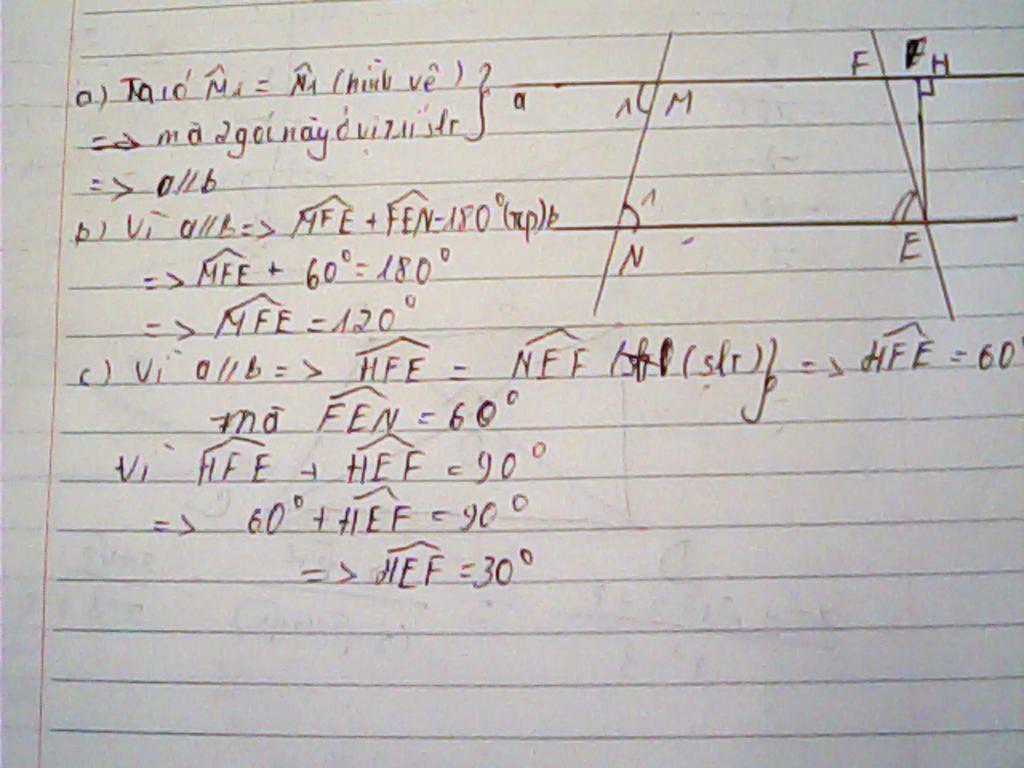 a) Ta có M̂₁ = N̂₁ (hình vẽ) }
=> mà 2 góc này ở vị trí slr
=> a//b
b) Vì a//b => M̂FE + F̂EN = 180° (tcp)
=> M̂FE + 60° = 180°
=> M̂FE = 120°
c) Vì a//b => ĤFE = N̂EF (slr) } => ĤFE = 60°
mà F̂EN = 60°
Vì ĤFE + ĤEF = 90°
=> 60° + ĤEF = 90°
=> ĤEF = 30°
F H
a 1 M
1
b N E